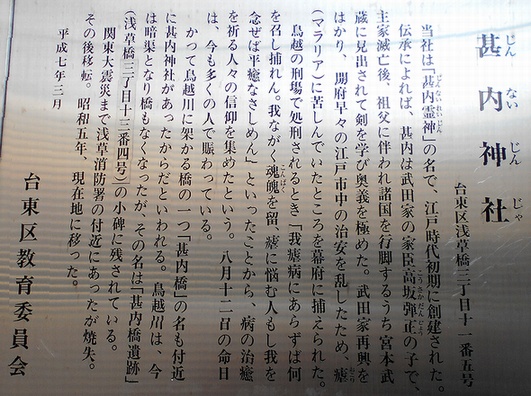 甚内神社
じんないじんじゃ
台東区浅草橋三丁目十一番五号
当社は『甚内霊神』の名で、江戸時代初期に創建された。
伝承によれば、甚内は武田家の家臣高坂弾正の子で、
主家滅亡後、祖父に伴われ諸国を行脚するうち宮本武
蔵に見出されて剣を学び奥義を極めた。武田家再興を
はかり、開府早々の江戸市中の治安を乱したため、瘧
(マラリア)に苦しんでいたところを幕府に捕えられた。
鳥越の刑場で処刑されるとき「我瘧病にあらずば何
を召し捕れん。我ながく魂魄を留、瘧に悩む人もし我を
念ぜば平癒なさしめん」といったことから、病の治癒
を祈る人々の信仰を集めたという。八月十二日の命日
は、今も多くの人で賑わっている。
かつて鳥越川に架かる橋の一つ「甚内橋」の名も付近
に甚内神社があったからだといわれる。鳥越川は、今
は暗渠となり橋もなくなったが、その名は「甚内橋遺跡」
(浅草橋三丁目十三番四号)の小碑に残されている。
関東大震災まで浅草消防署の付近にあったが焼失。
その後移転。昭和五年、現在地に移った。
平成七年三月
台東区教育委員会